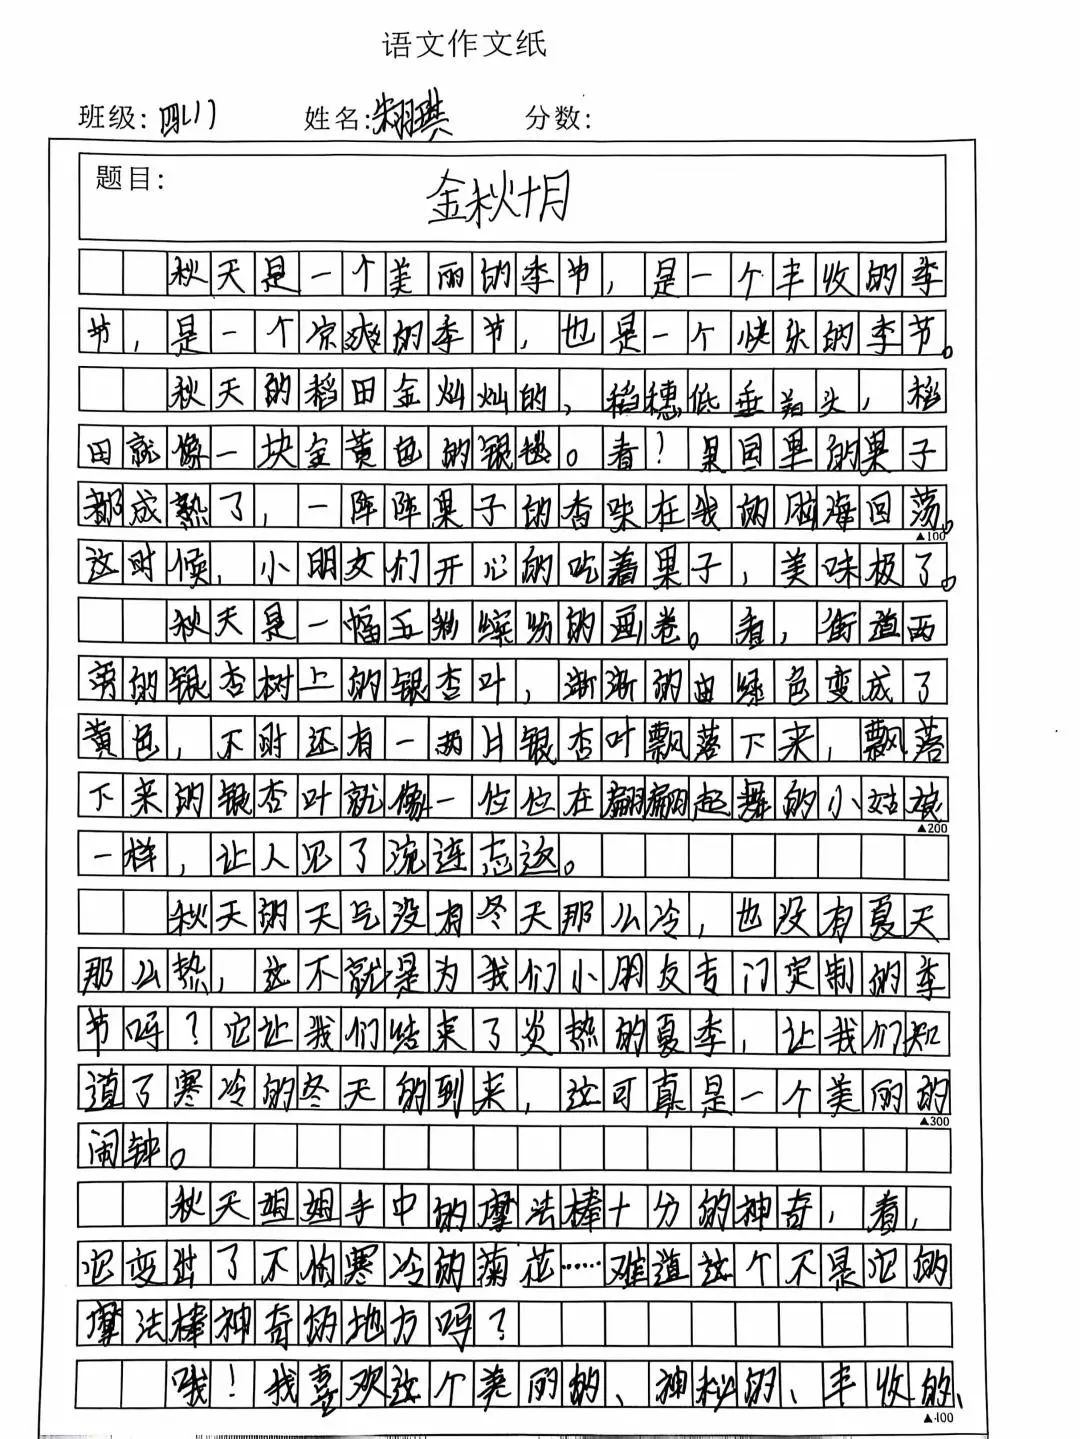 语文作文纸
班级: 四(1) 姓名: 分数:
题目: 金秋十月
秋天是一个美丽的季节，是一个丰收的季
节，是一个凉爽的季节，也是一个快乐的季节。
秋天的稻田金灿灿的，稻穗低垂着头，稻
田就像一块金黄色的银毯。看！果园里的果子
都成熟了，一阵阵果子的香味在我的脑海回荡。
▲100
这时候，小朋友们开心的吃着果子，美味极了。
秋天是一幅五彩缤纷的画卷。看，街道两
旁的银杏树上的银杏叶，渐渐的由绿色变成了
黄色，不时还有一两片银杏叶飘落下来，飘落
下来的银杏叶就像一位位在翩翩起舞的小姑娘
▲200
一样，让人见了流连忘返。
秋天的天气没有冬天那么冷，也没有夏天
那么热，这不就是为我们小朋友专门定制的季
节吗？它让我们结束了炎热的夏季，让我们知
道了寒冷的冬天的到来，这可真是一个美丽的
▲300
闹钟。
秋天姐姐手中的摩法棒十分的神奇，看，
它变出了不怕寒冷的菊花……难道这个不是它的
摩法棒神奇的地方吗？
哦！我喜欢这个美丽的、神秘的、丰收的、
▲400